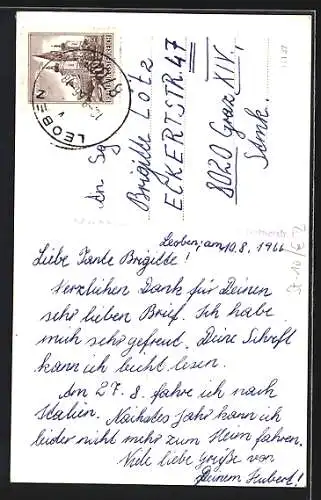 LEOBEN
An Sg
Brigitte Lotz
ECKERTSTR. 47
8020 Graz XIV,
Stmk.
Leoben, am 10.8.1966
Liebe Tante Brigitte!
Herzlichen Dank für Deinen
sehr lieben Brief. Ich habe
mich sehr gefreut. Deine Schrift
kann ich leicht lesen.
Am 27. 8. fahre ich nach
Italien. Nächstes Jahr kann ich
leider nicht mehr zum Heim fahren.
Viele liebe Grüße von
Deinem Hubert!